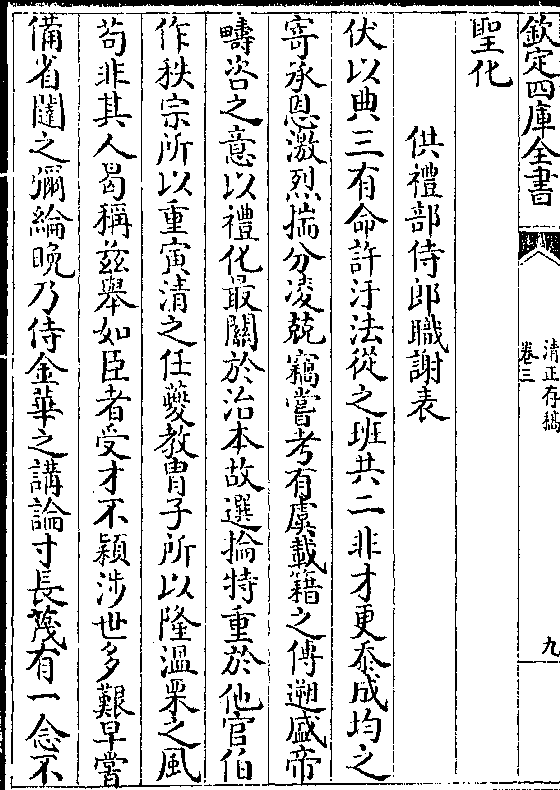 欽定四庫全書
清正存稿
卷三
九
聖化
供禮部侍郎職謝表
伏以典三有命許汙法從之班共二非才更忝成均之
寄承恩激烈揣分凌兢竊嘗考有虞載籍之傳遡盛帝
疇咨之意以禮化最關於治本故選掄特重於他官伯
作秩宗所以重寅清之任夔教胄子所以隆溫栗之風
茍非其人曷稱兹舉如臣者受才不穎涉世多艱早嘗
備省闥之彌綸晚乃侍金華之講論寸長蔑有一念不